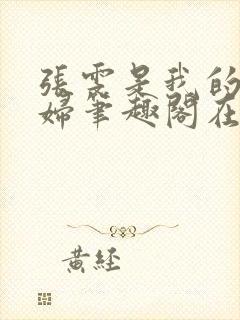 張雲是我的
婦筆趣閣在
黃經